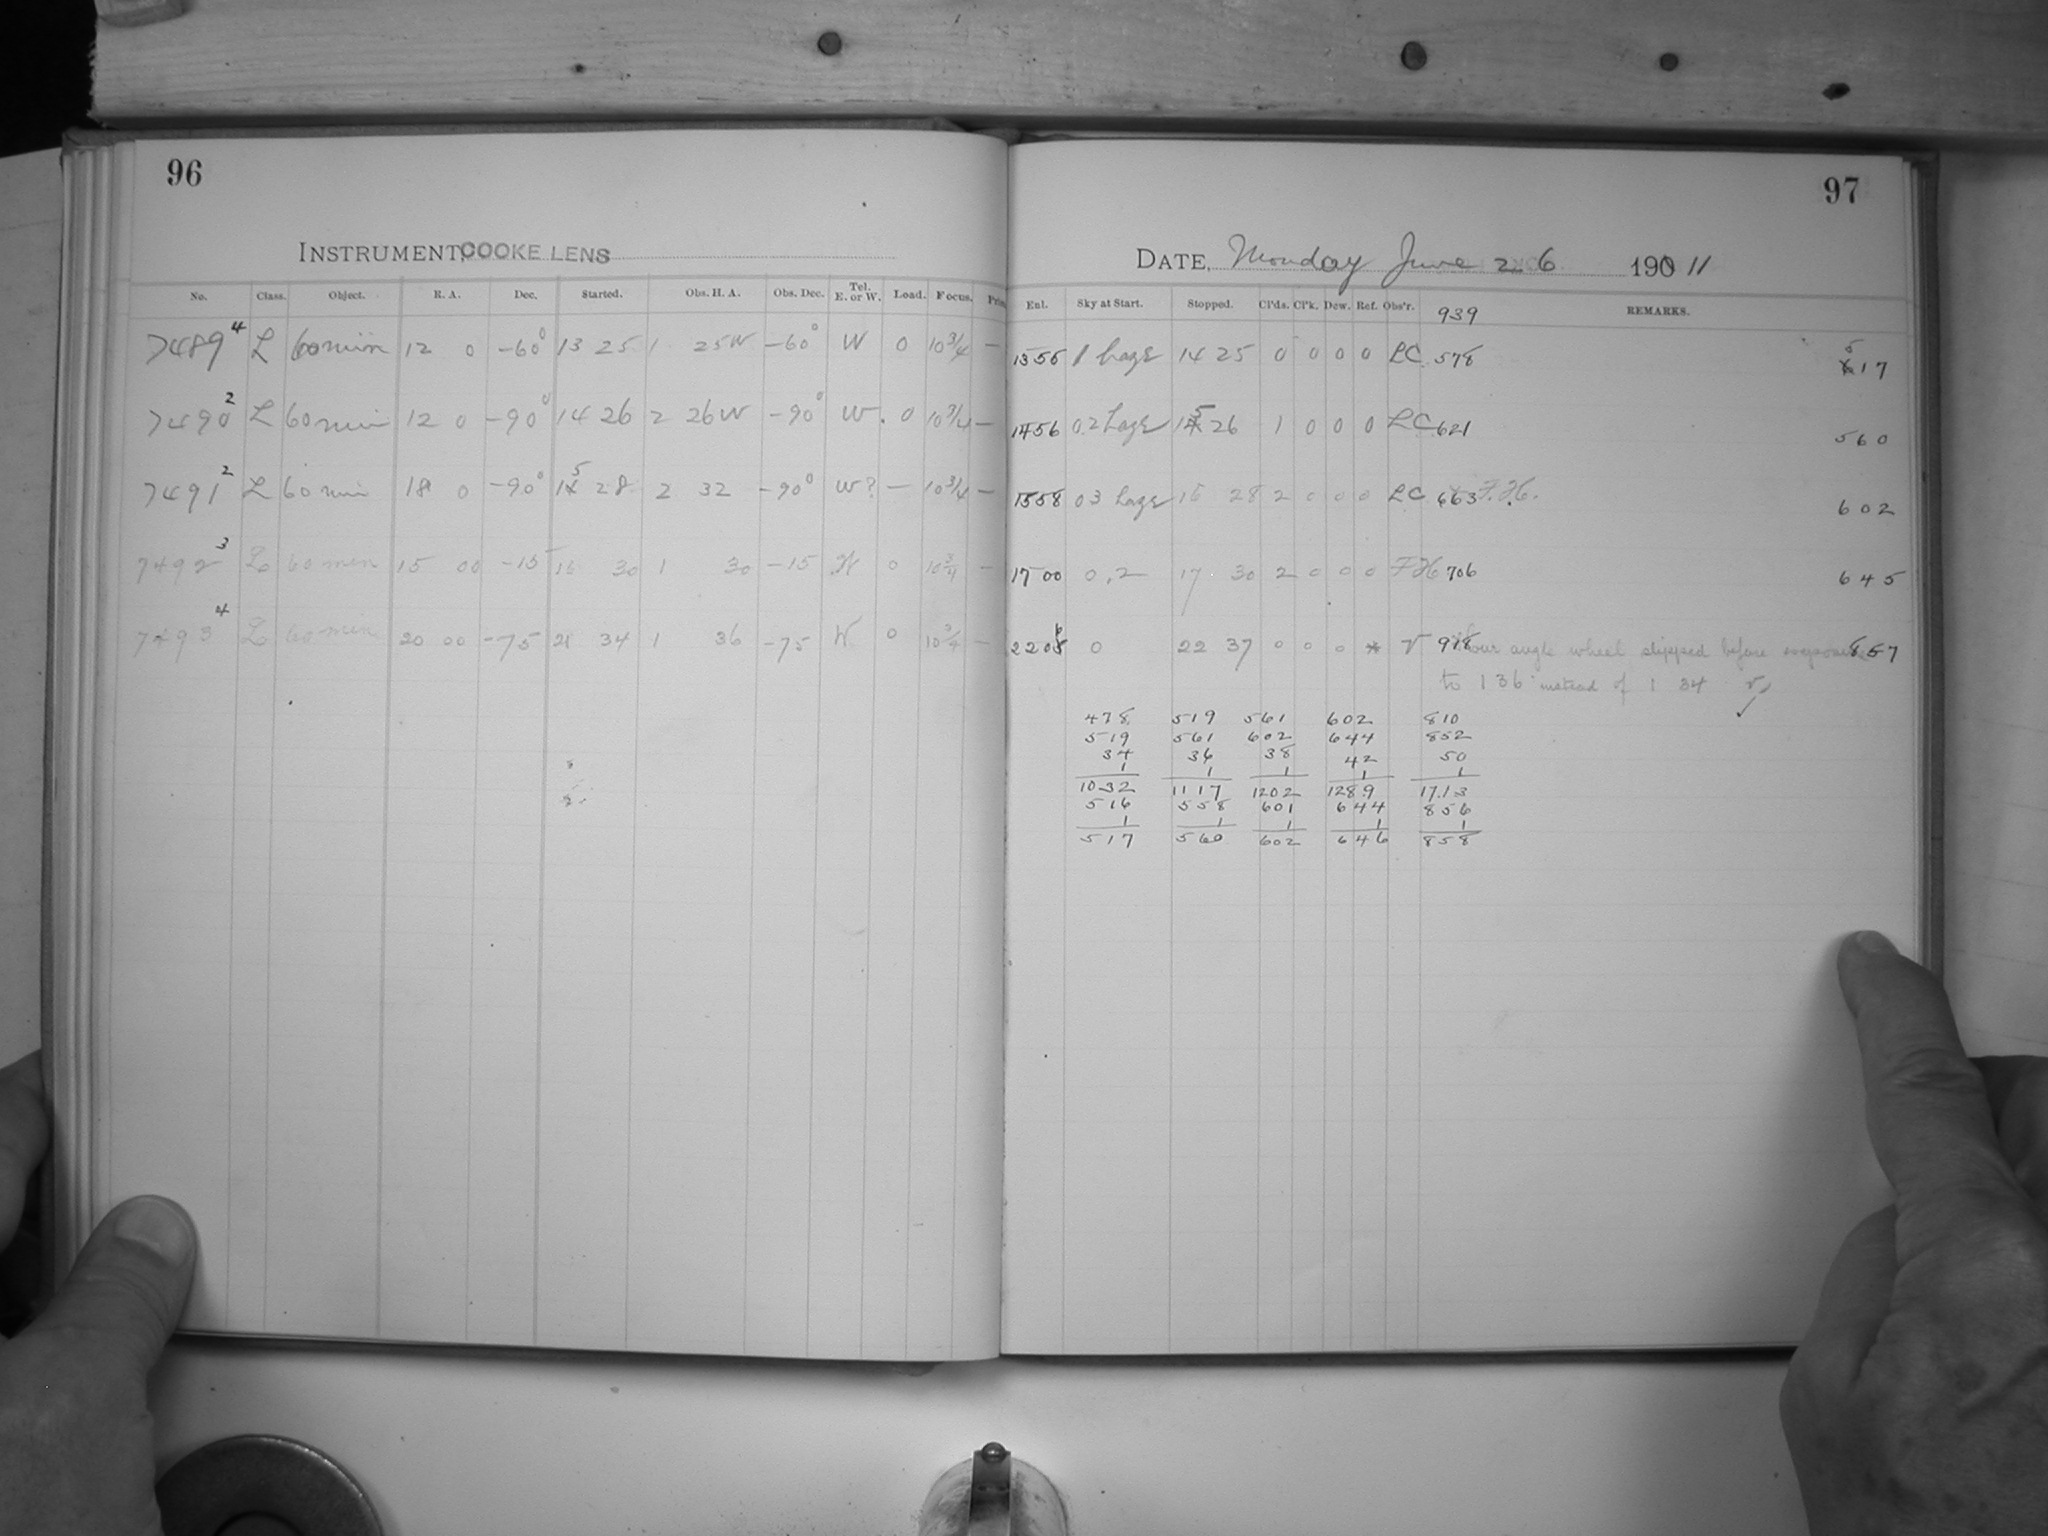 96
97
INSTRUMENT, COOKE LENS
DATE, Monday June 26 1911
No. Class. Object. R. A. Dec. Started. Obs. H. A. Obs. Dec. Tel. E. or W. Load. Focus.
Enl. Sky at Start. Stopped. Cl'ds. Cl'k. Dew. Ref. Obs'r. 939 REMARKS.
7489 4 L 60 min 12 0 -60° 13 25 1 25W -60° W 0 10 3/4 — 1355 1 haze 14 25 0 0 0 0 LC 578 517
7490 2 L 60 min 12 0 -90° 14 26 2 26W -90° W. 0 10 3/4 — 1456 0.2 haze 15 26 1 0 0 0 LC 621 560
7491 2 L 60 min 18 0 -90° 15 28 2 32 -90° W? — 10 3/4 — 1558 03 haze 16 28 2 0 0 0 LC 663 F.H. 602
7492 3 L 60 min 15 00 -15 16 30 1 30 -15 W 0 10 3/4 — 1700 0.2 17 30 2 0 0 0 FH 706 645
7493 4 L 60 min 20 00 -75 21 34 1 36 -75 W 0 10 3/4 — 2206 0 22 37 0 0 0 * V 918 hour angle wheel slipped before exposure 857
to 1 36 instead of 1 34
478 519 561 602 810
519 561 602 644 852
34 36 38 42 50
1 1 1 1 1
1032 1117 1202 1289 1713
516 558 601 644 856
1 1 1 1 1
517 560 602 646 858